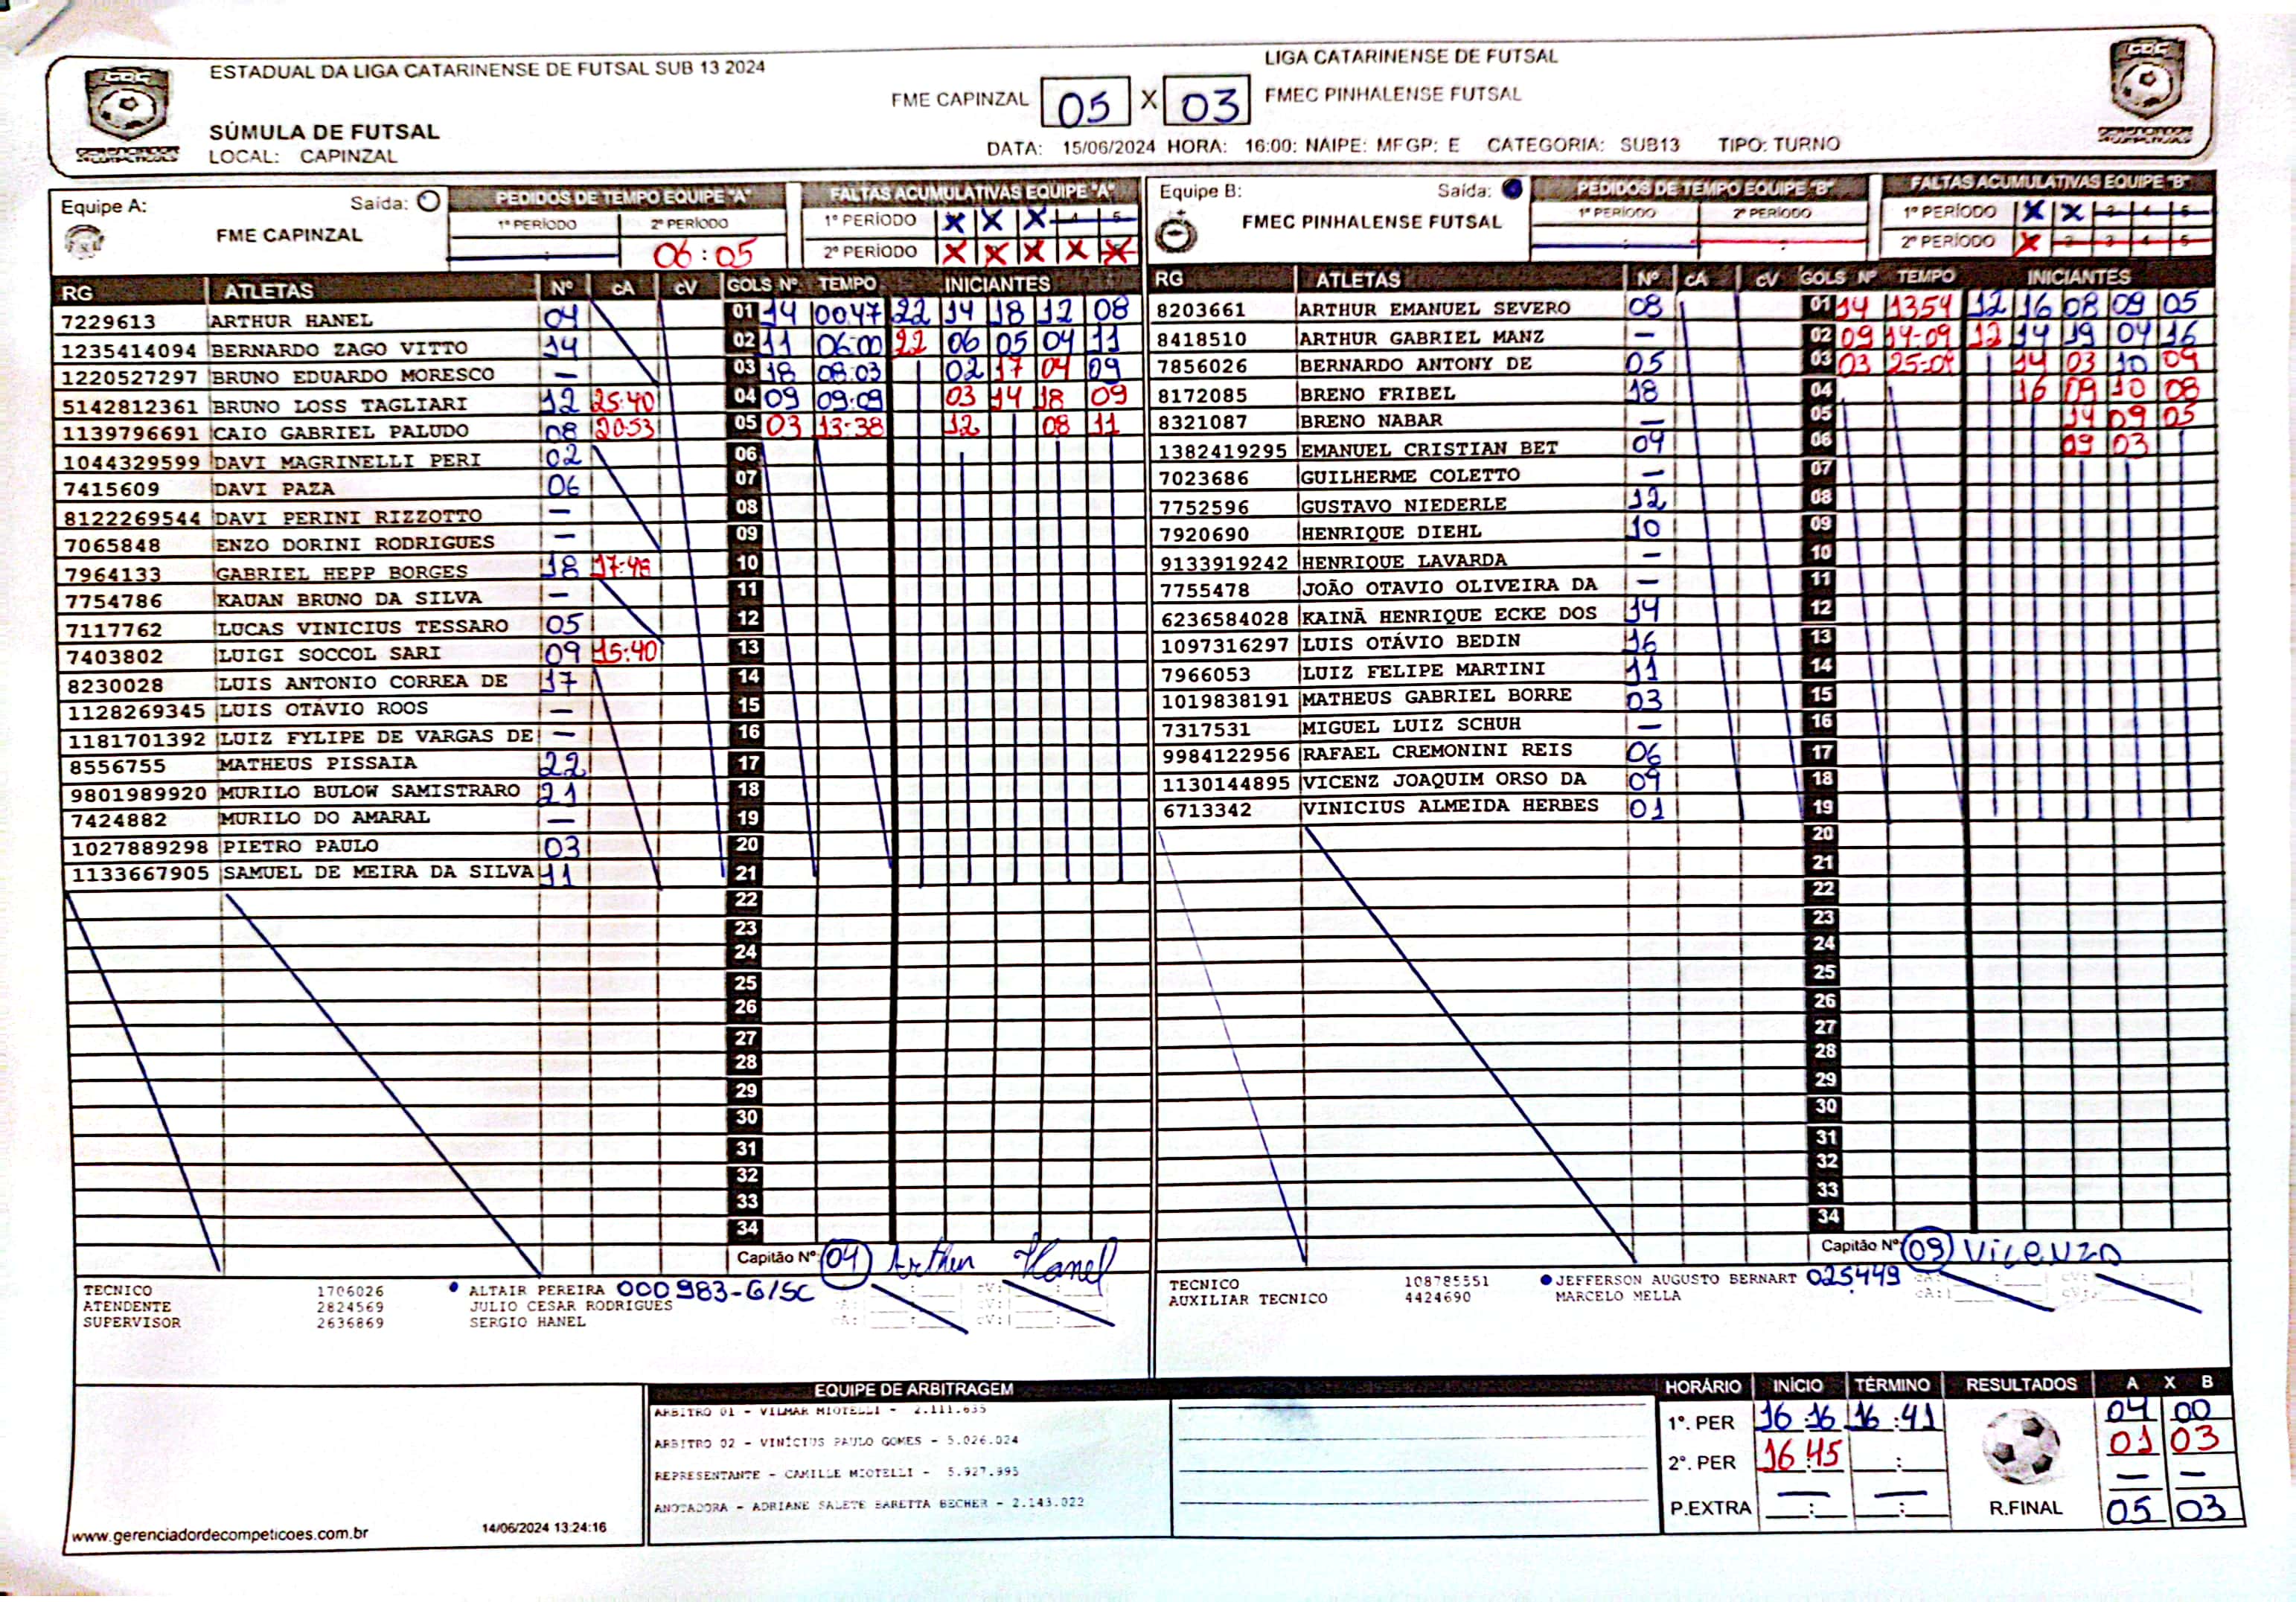 ESTADUAL DA LIGA CATARINENSE DE FUTSAL SUB 13 2024
LIGA CATARINENSE DE FUTSAL
FME CAPINZAL 05 X 03 FMEC PINHALENSE FUTSAL
SÚMULA DE FUTSAL
LOCAL: CAPINZAL
DATA: 15/06/2024 HORA: 16:00: NAIPE: MFGP: E CATEGORIA: SUB13 TIPO: TURNO
Equipe A: Saída:
FME CAPINZAL
PEDIDOS DE TEMPO EQUIPE "A"
1º PERÍODO 2º PERÍODO
06:05
FALTAS ACUMULATIVAS EQUIPE "A"
1º PERÍODO X X X 4 5
2º PERÍODO X X X X X
RG ATLETAS Nº cA cV GOLS Nº TEMPO INICIANTES
7229613 ARTHUR HANEL 04 01 14 00:47 22 14 18 12 08
1235414094 BERNARDO ZAGO VITTO 14 02 11 06:00 22 06 05 04 11
1220527297 BRUNO EDUARDO MORESCO — 03 18 08:03 02 17 04 09
5142812361 BRUNO LOSS TAGLIARI 12 25:40 04 09 09:09 03 14 18 09
1139796691 CAIO GABRIEL PALUDO 08 20:53 05 03 13:38 12 08 11
1044329599 DAVI MAGRINELLI PERI 02 06
7415609 DAVI PAZA 06 07
8122269544 DAVI PERINI RIZZOTTO — 08
7065848 ENZO DORINI RODRIGUES — 09
7964133 GABRIEL HEPP BORGES 18 17:48 10
7754786 KAUAN BRUNO DA SILVA — 11
7117762 LUCAS VINICIUS TESSARO 05 12
7403802 LUIGI SOCCOL SARI 09 15:40 13
8230028 LUIS ANTONIO CORREA DE 17 14
1128269345 LUIS OTÁVIO ROOS — 15
1181701392 LUIZ FYLIPE DE VARGAS DE — 16
8556755 MATHEUS PISSAIA 22 17
9801989920 MURILO BULOW SAMISTRARO 21 18
7424882 MURILO DO AMARAL — 19
1027889298 PIETRO PAULO 03 20
1133667905 SAMUEL DE MEIRA DA SILVA 11 21
22
23
24
25
26
27
28
29
30
31
32
33
34
Capitão Nº: 04 Arthur Hanel
TECNICO 1706026 ALTAIR PEREIRA 000983-G/SC cV:
ATENDENTE 2824569 JULIO CESAR RODRIGUES
SUPERVISOR 2636869 SERGIO HANEL cA: cV:
Equipe B: Saída:
FMEC PINHALENSE FUTSAL
PEDIDOS DE TEMPO EQUIPE "B"
1º PERÍODO 2º PERÍODO
FALTAS ACUMULATIVAS EQUIPE "B"
1º PERÍODO X X 3 4 5
2º PERÍODO X 2 3 4 5
RG ATLETAS Nº cA cV GOLS Nº TEMPO INICIANTES
8203661 ARTHUR EMANUEL SEVERO 08 01 14 13:54 12 16 08 09 05
8418510 ARTHUR GABRIEL MANZ — 02 09 14:09 12 14 19 04 16
7856026 BERNARDO ANTONY DE 05 03 03 14 03 10 09
8172085 BRENO FRIBEL 18 04 16 09 10 08
8321087 BRENO NABAR — 05 14 09 05
1382419295 EMANUEL CRISTIAN BET 04 06 09 03
7023686 GUILHERME COLETTO — 07
7752596 GUSTAVO NIEDERLE 12 08
7920690 HENRIQUE DIEHL 10 09
9133919242 HENRIQUE LAVARDA — 10
7755478 JOÃO OTAVIO OLIVEIRA DA — 11
6236584028 KAINÃ HENRIQUE ECKE DOS 14 12
1097316297 LUIS OTÁVIO BEDIN 16 13
7966053 LUIZ FELIPE MARTINI 11 14
1019838191 MATHEUS GABRIEL BORRE 03 15
7317531 MIGUEL LUIZ SCHUH — 16
9984122956 RAFAEL CREMONINI REIS 06 17
1130144895 VICENZ JOAQUIM ORSO DA 09 18
6713342 VINICIUS ALMEIDA HERBES 01 19
20
21
22
23
24
25
26
27
28
29
30
31
32
33
34
Capitão Nº: 09 Vicenzo
TECNICO 108785551 JEFFERSON AUGUSTO BERNART 025449 cA: cV:
AUXILIAR TECNICO 4424690 MARCELO MELLA cA: cV:
EQUIPE DE ARBITRAGEM
ARBITRO 01 - VILMAR MIOTELLI - 2.111.635
ARBITRO 02 - VINÍCIUS PAULO GOMES - 5.026.024
REPRESENTANTE - CAMILLE MIOTELLI - 5.927.995
ANOTADORA - ADRIANE SALETE BARETTA BECHER - 2.143.022
www.gerenciadordecompeticoes.com.br 14/06/2024 13:24:16
HORÁRIO INÍCIO TÉRMINO RESULTADOS A X B
1º. PER 16:16 16:41 04 00
2º. PER 16:45 : 01 03
P.EXTRA : : — —
R.FINAL 05 03